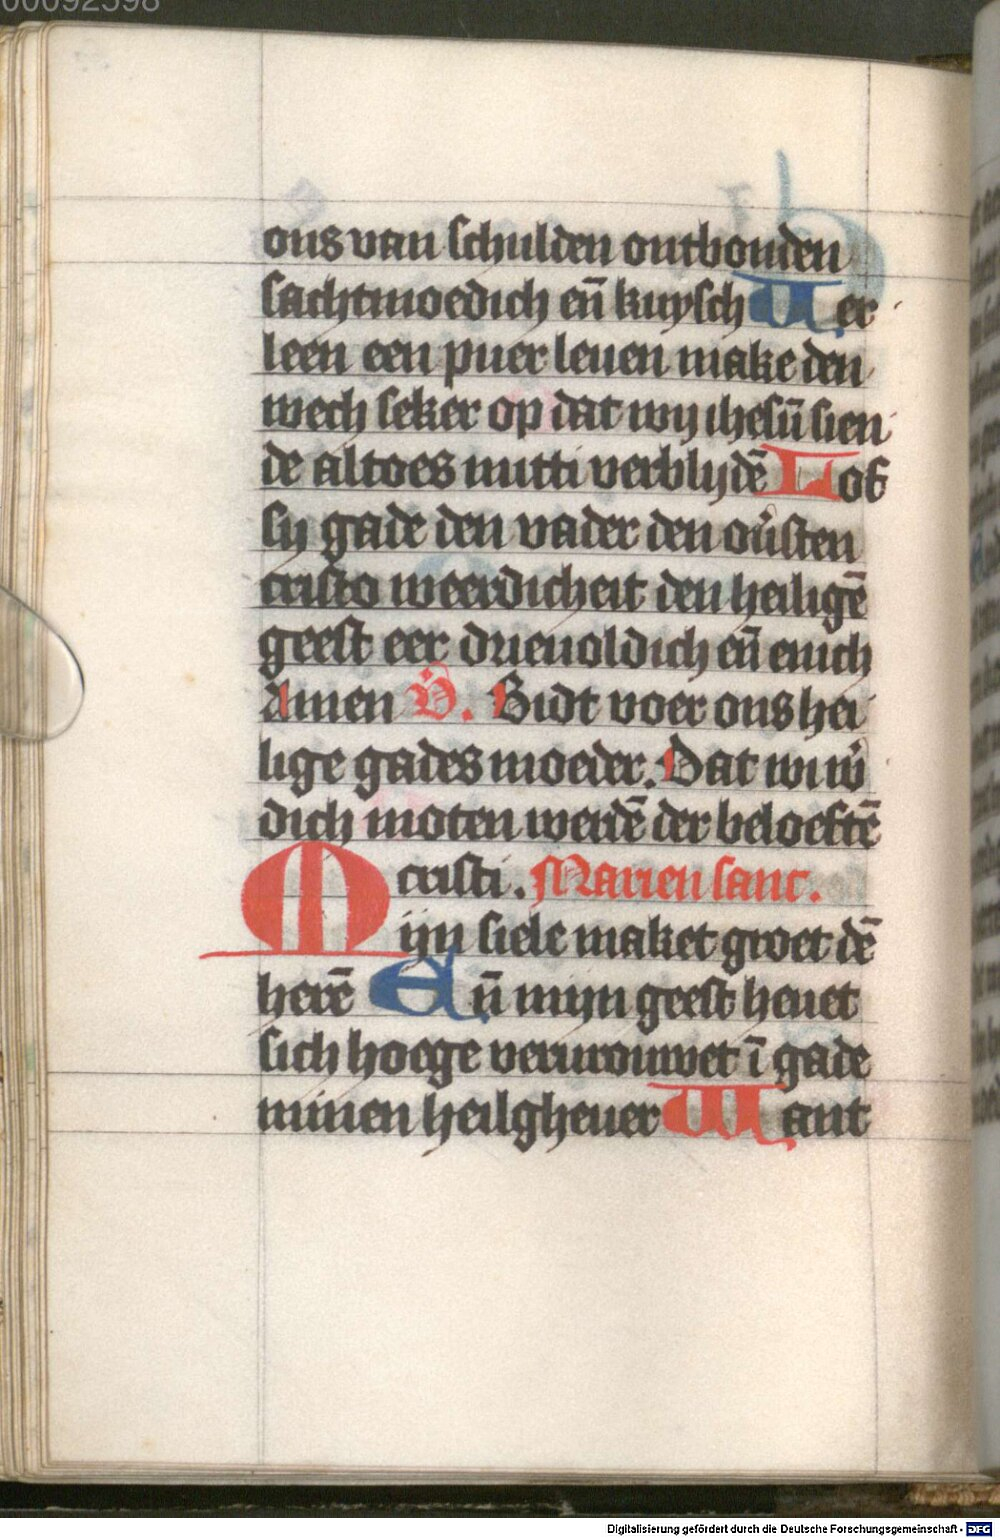 00092598
ons van schulden ontbonden
sachtmoedich en̄ kuysch Uer
leen een puer leuen make den
wech seker op dat wy ihesū sien
de altoes mitti verblydē Lof
sy gade den vader den ou̓sten
cristo weerdicheit den heiligē
geest eer drieuoldich en̄ enich
Amen V. Bidt voer ons hei
lige gades moeder. Dat wi w̓
dich moten werdē der beloeftē
cristi. Marien sanc.
Mijn siele maket groet dē
herē En̄ mijn geest heuet
sich hoege vervrouwet ī gade
minen heilgheuer Want
Digitalisierung gefördert durch die Deutsche Forschungsgemeinschaft - DFG